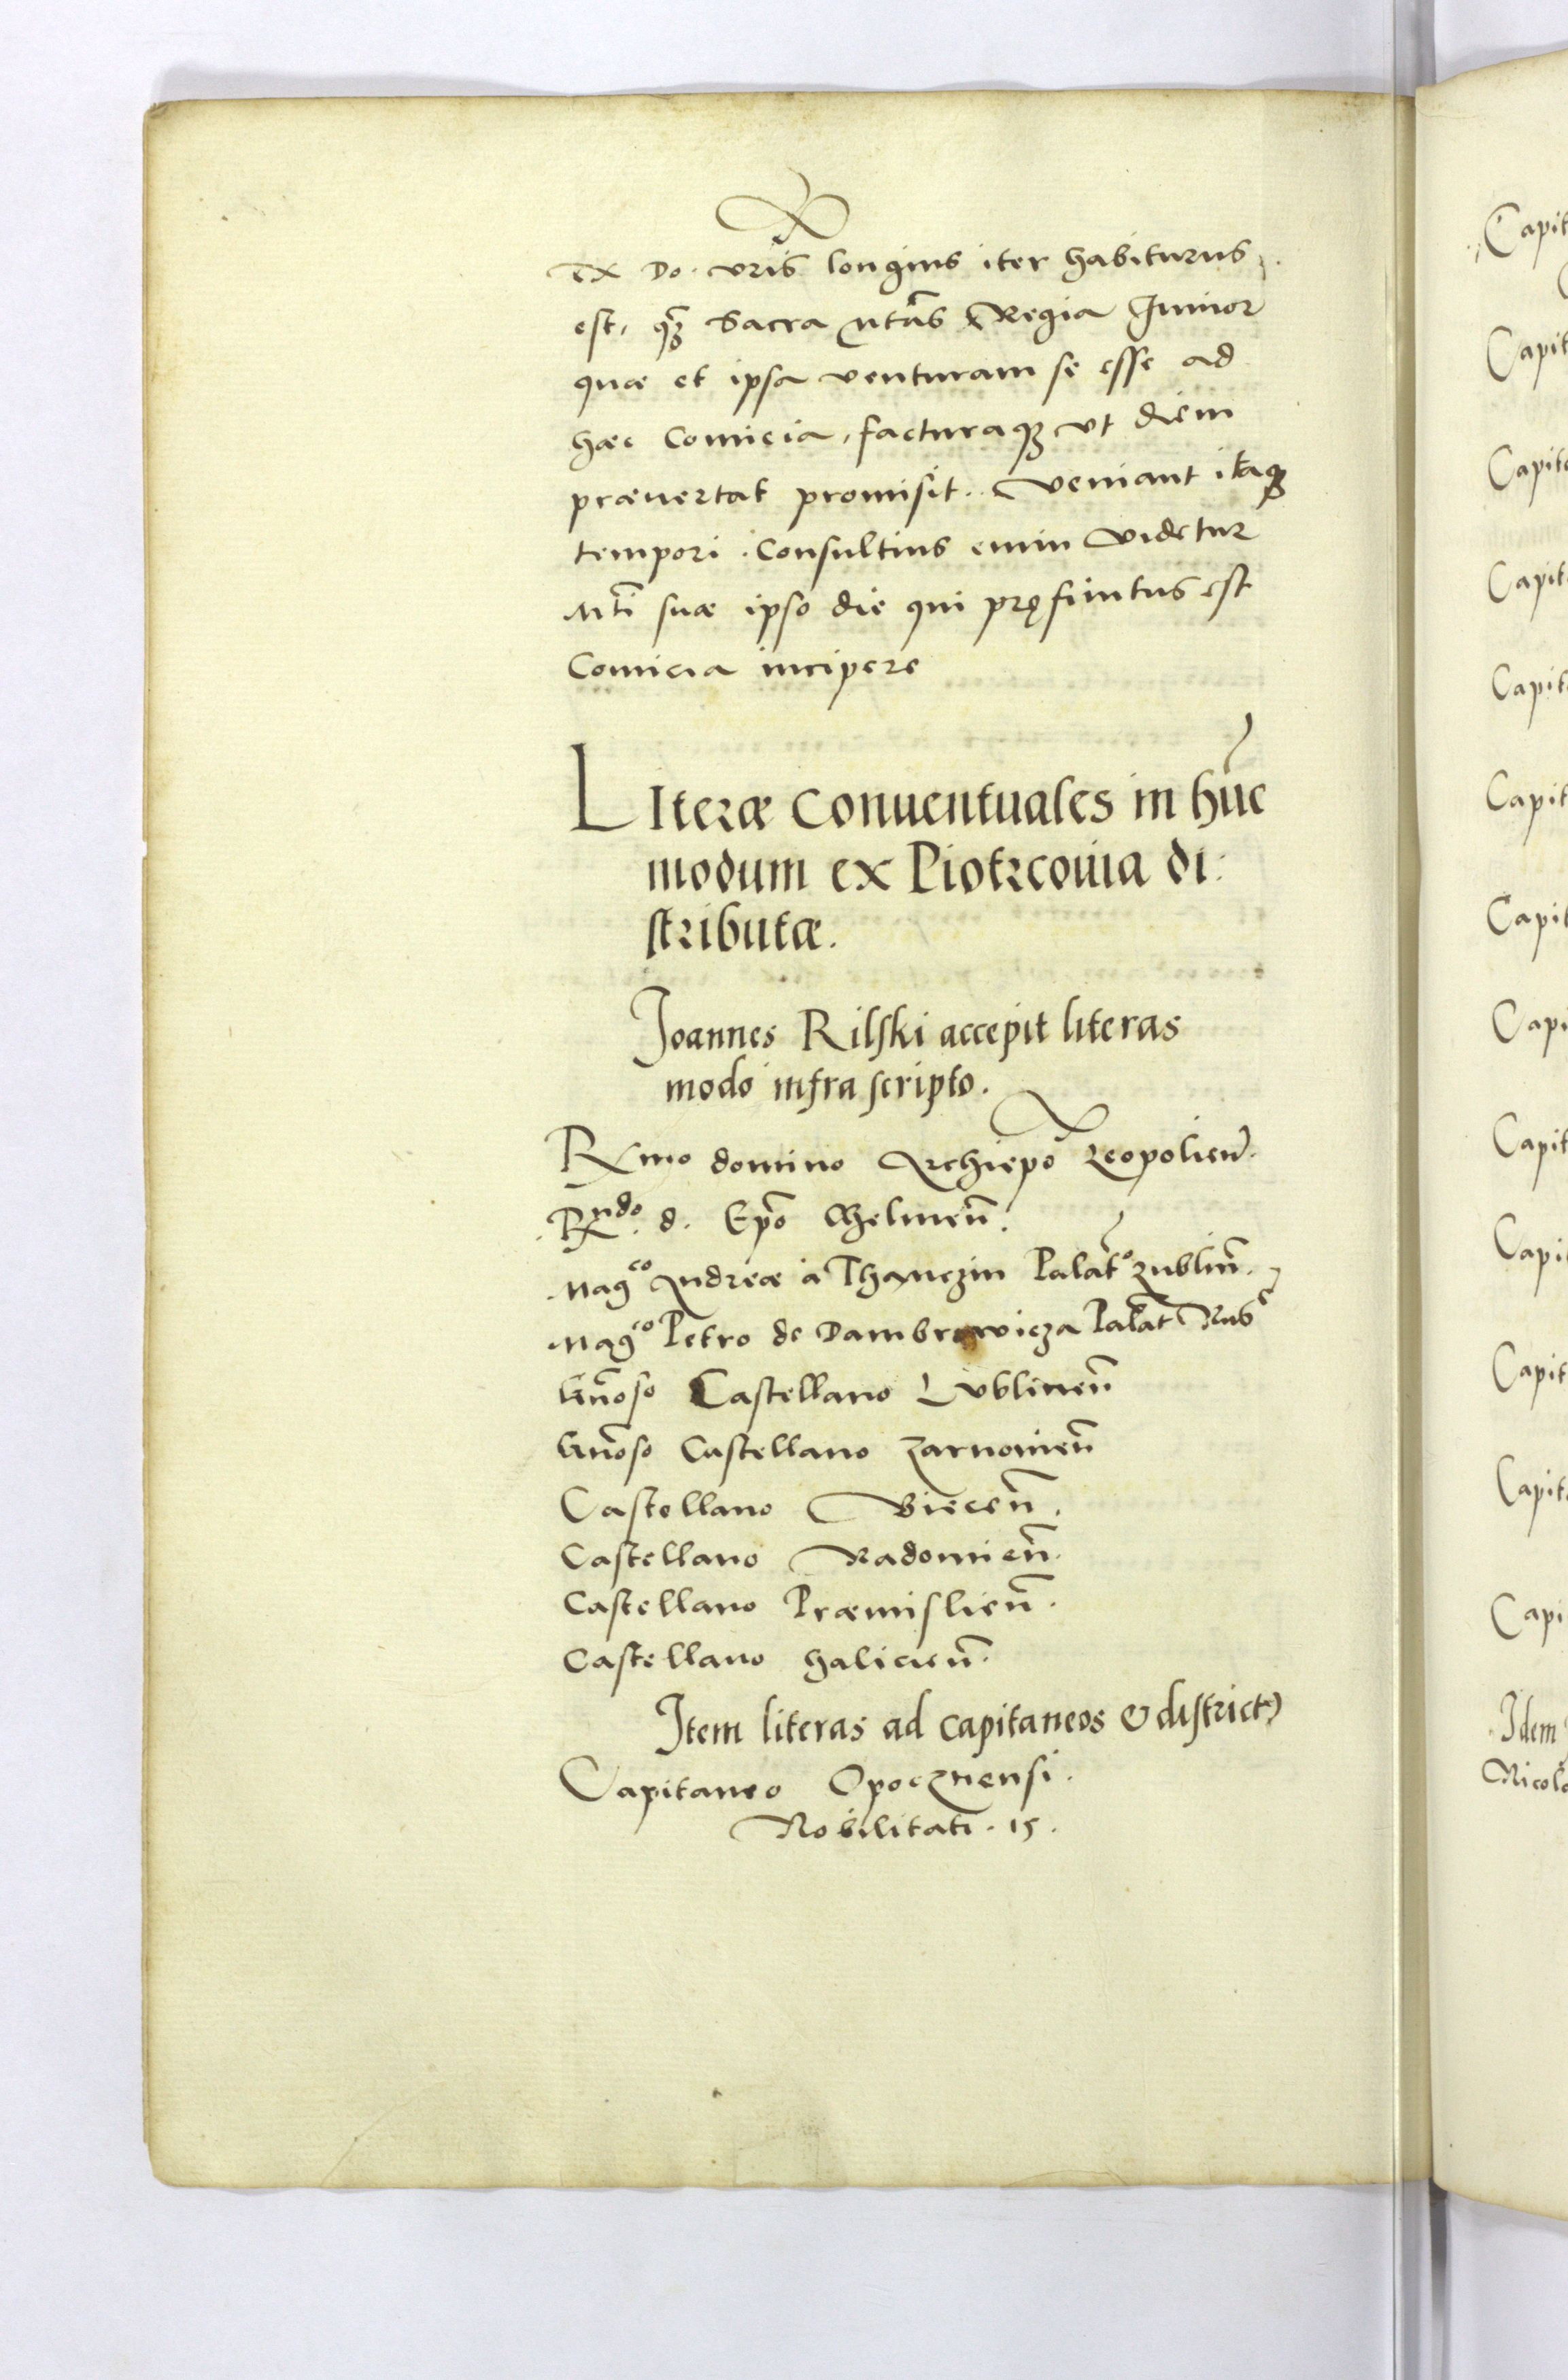 Ex Do. vris longius iter habiturus
est, qᷓꝫ Sacra Mtãs Regia Iunior
quæ et ipsa venturam se esse ad
hæc Comicia, facturaqꝫ vt diem
præuertat promisit. Veniant itaqꝫ
tempori. Consultius enim videtur
Mti suæ ipso die qui pręfinitus est
Comicia incipere
LIteræ Conuentuales in hũc
modum ex Piotrcouia di:
stributæ.
Joannes Rilski accepit literas
modo infra scripto.
Rmo domino Archiepõ Leopolieñ.
Rndo. d. Epõ Chelmeñ.
Magco Andreæ a Thanczin Palatº Lubliñ.
Magco Petro de Dambrowicza Palat Rusᵉ
Gñoso Castellano Lublineñ
Gñoso Castellano Zarnouieñ
Castellano Bieceñ.
Castellano Radomieñ.
Castellano Præmislieñ.
Castellano Halicieñ.
Item literas ad capitaneos & district)
Capitaneo Opocznensi.
Nobilitati. 15.
Capit
Capit
Capita
Capit
Capit
Capit
Capit
Capi
Capit
Capi
Capit
Capit
Capi
Idem
Nicola